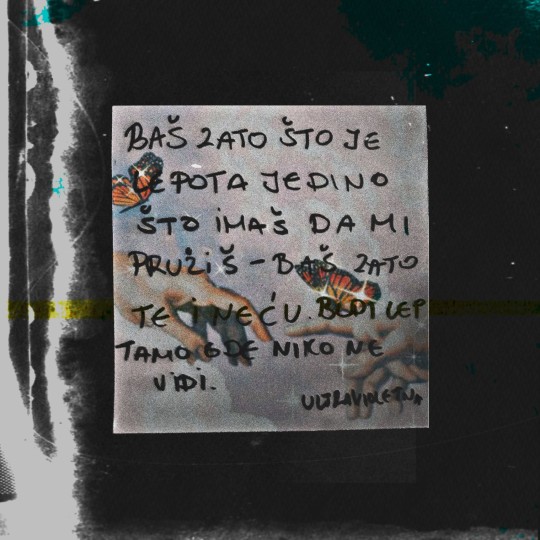 BAŠ ZATO ŠTO JE
LEPOTA JEDINO
ŠTO IMAŠ DA MI
PRUŽIŠ - BAŠ ZATO
TE I NEĆU. BUDI LEP
TAMO GDE NIKO NE
VIDI.
ULTRAVIOLETNA